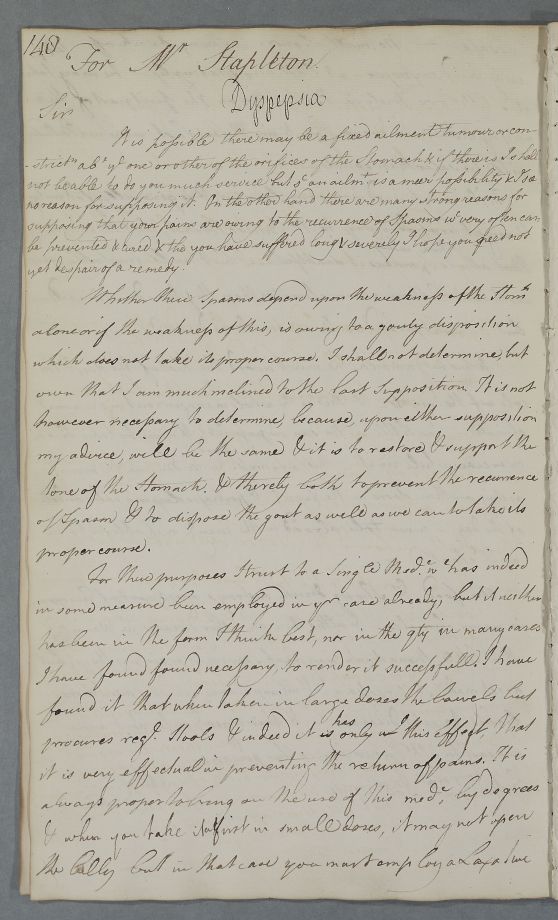 140
For Mr Stapleton.
Dyspepsia
Sir
It is possible there may be a fixed ailment tumour or con-
-strictn abt ye one or other of the orifices of the Stomach & if there is I shall
not be able to do you much service but such an ailmt is a meer possibility & I see
no reason for supposing it. On the other hand there are many strong reasons for
supposing that your pains are owing to the recurrence of Spasms wc very often can
be prevented & cured & tho you have suffered long & severely I hope you need not
yet despair of a remedy.
Whether these Spasms depend upon the weakness of the Stomh
alone or if the weakness of this, is owing to a gouty disposition
which does not take its proper course. I shall not determine, but
own that I am much inclined to the last supposition. It is not
however necessary to determine because, upon either supposition
my advice, will be the same & it is to restore & support the
tone of the Stomach. & thereby both to prevent the recurrence
of Spasm & to dispose the gout as well as we can to take its
proper course.
For these purposes I trust to a Single Medc. wc has indeed
in some measure been employed in yr case already, but it neither
has been in the form I think best, nor in the qty in many cases
I have found found necessary, to render it successfull. I have
found it that when taken in large doses the bowels but
procures regr. Stools & indeed it is has only wt this Effect, that
it is very effectual in preventing the return of pains. It is
always proper to bring on the use of this medc. by degrees
& when you take it first in small doses, it may not open
the belly but in that case you must employ a Laxative